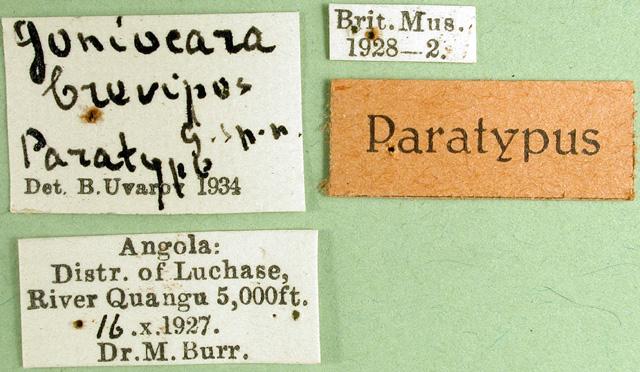 Goniocara
brevipes
g. sp. n.
Paratype
Det. B. Uvarov 1934
Brit. Mus.
1928—2.
Paratypus
Angola:
Distr. of Luchase,
River Quangu 5,000ft.
16.x.1927.
Dr. M. Burr.